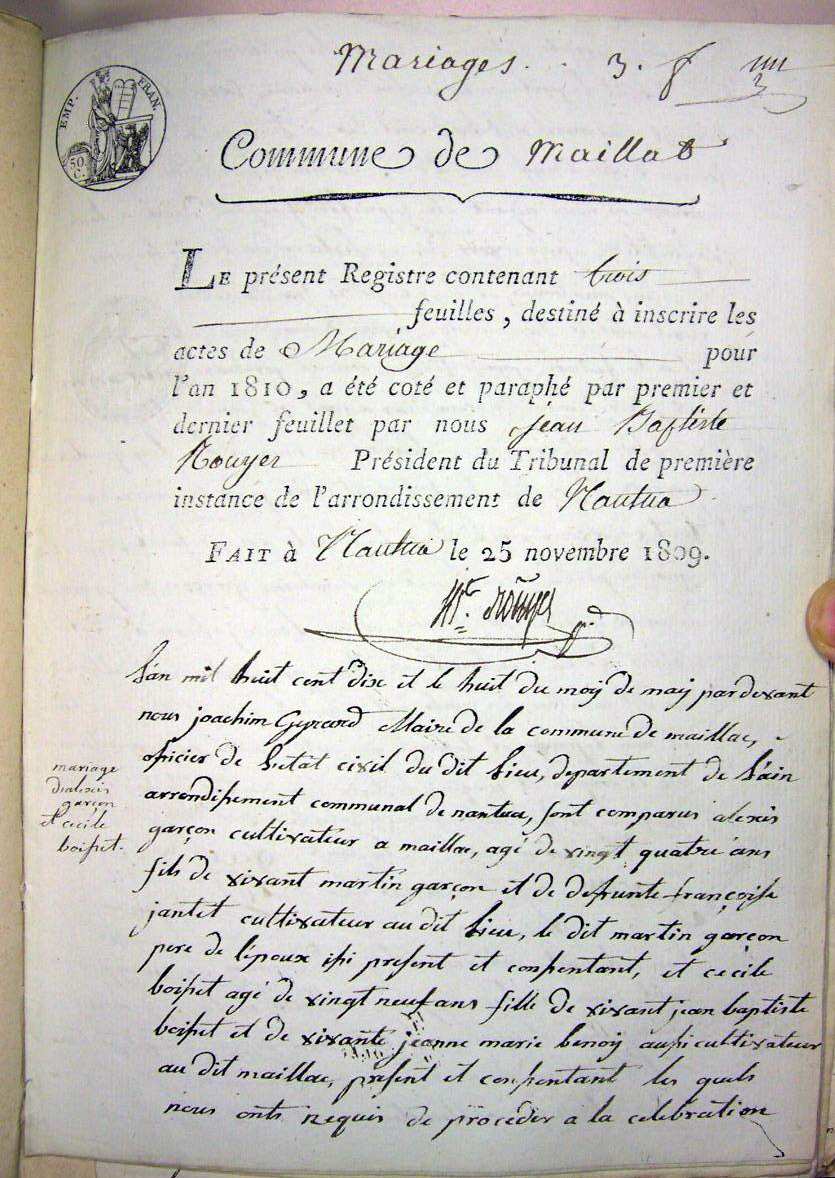 Mariages. 3. f
3
EMP. FRAN.
50. C.
Commune de Maillat
LE présent Registre contenant trois
feuilles, destiné à inscrire les
actes de Mariage pour
l'an 1810, a été coté et paraphé par premier et
dernier feuillet par nous jean Baptiste
Rouyer Président du Tribunal de première
instance de l'arrondissement de Nantua
FAIT à Nantua le 25 novembre 1809.
Bte. Rouyer
L'an mil huit cent dix et le huit du moy de may pardevant
nous joachim Maire de la commune de maillac,
officier de L'etat civil du dit Lieu, departement de L'ain
arrondissement communal de nantua, sont comparus alexis
garçon cultivateur a maillac, agé de vingt quatre ans
fils de vivant martin garçon et de defunte françoise
jantet cultivateur au dit Lieu, le dit martin garçon
pere de l'epoux issi present et consentant, et cecile
boisset agé de vingt neuf ans fille de vivant jean baptiste
boisset et de vivante jeanne marie benoy aussi cultivateur
au dit maillac, present et consentant les quels
nous onts requis de proceder a la celebration
mariage
d'alexis
garçon
et cecile
boisset.